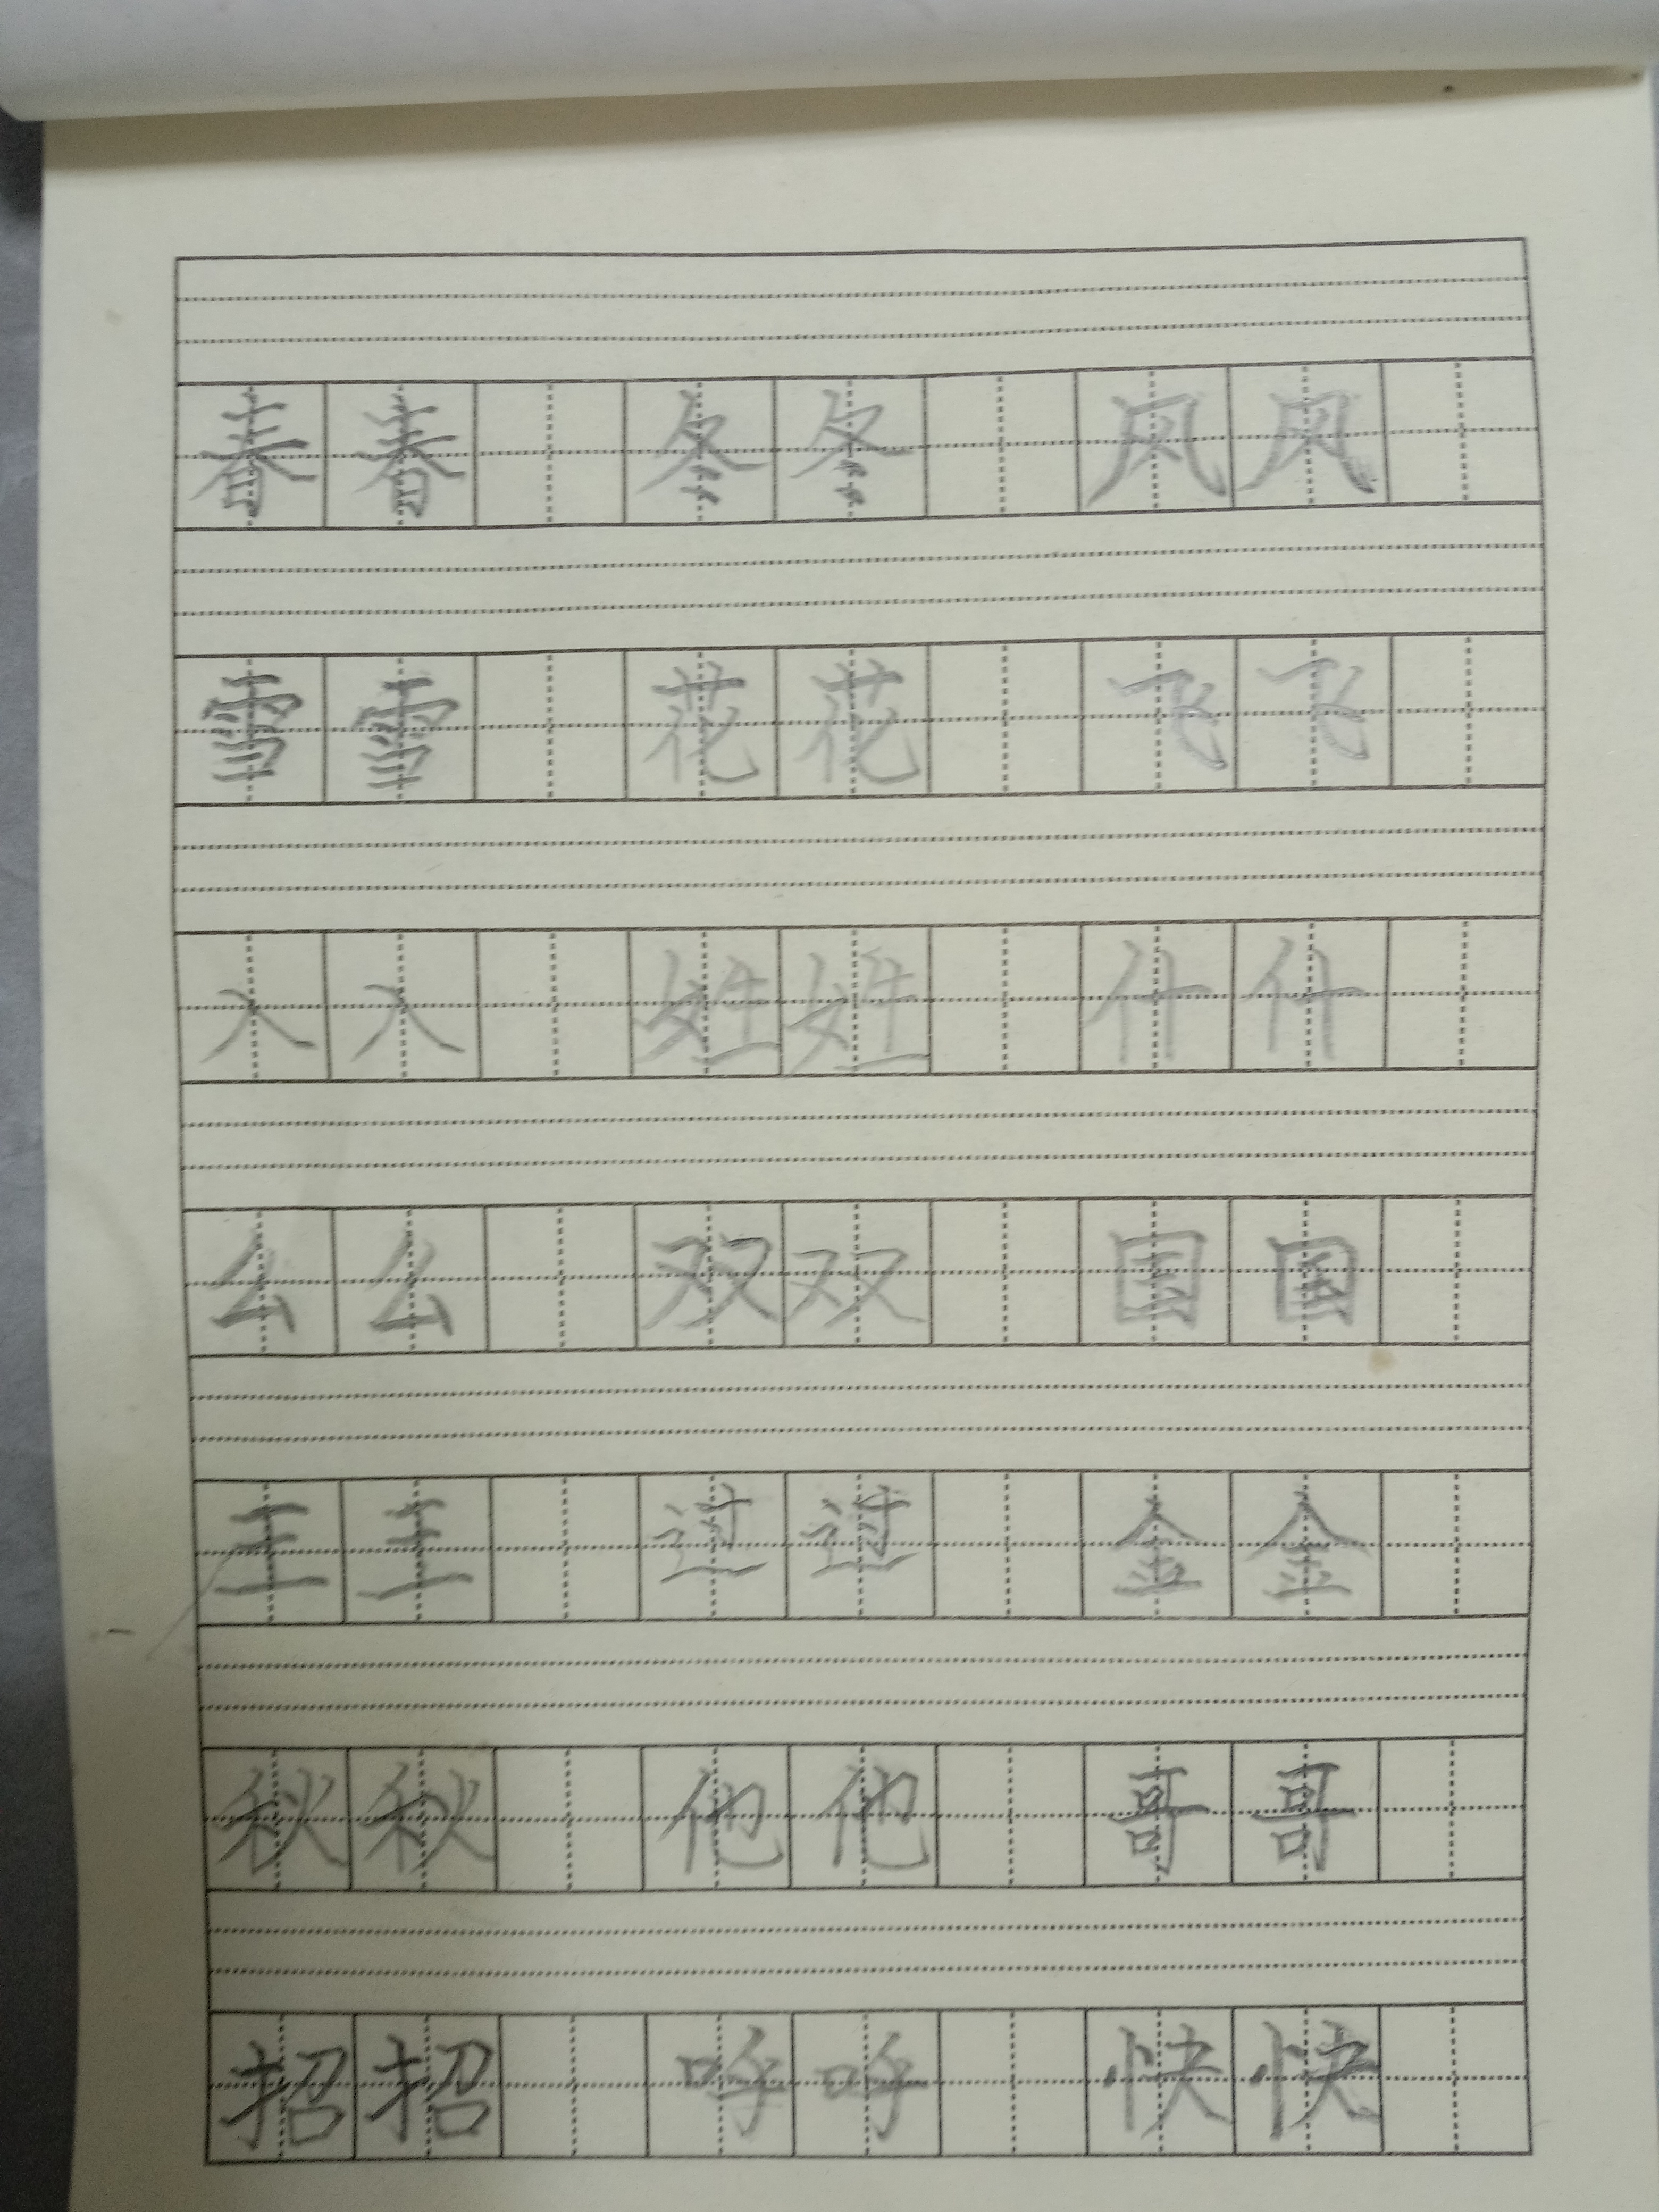 春 春 冬 冬 风 风
雪 雪 花 花 飞 飞
入 入 姓 姓 什 什
么 么 双 双 国 国
王 王 过 过 金 金
秋 秋 他 他 哥 哥
招 招 呼 呼 快 快